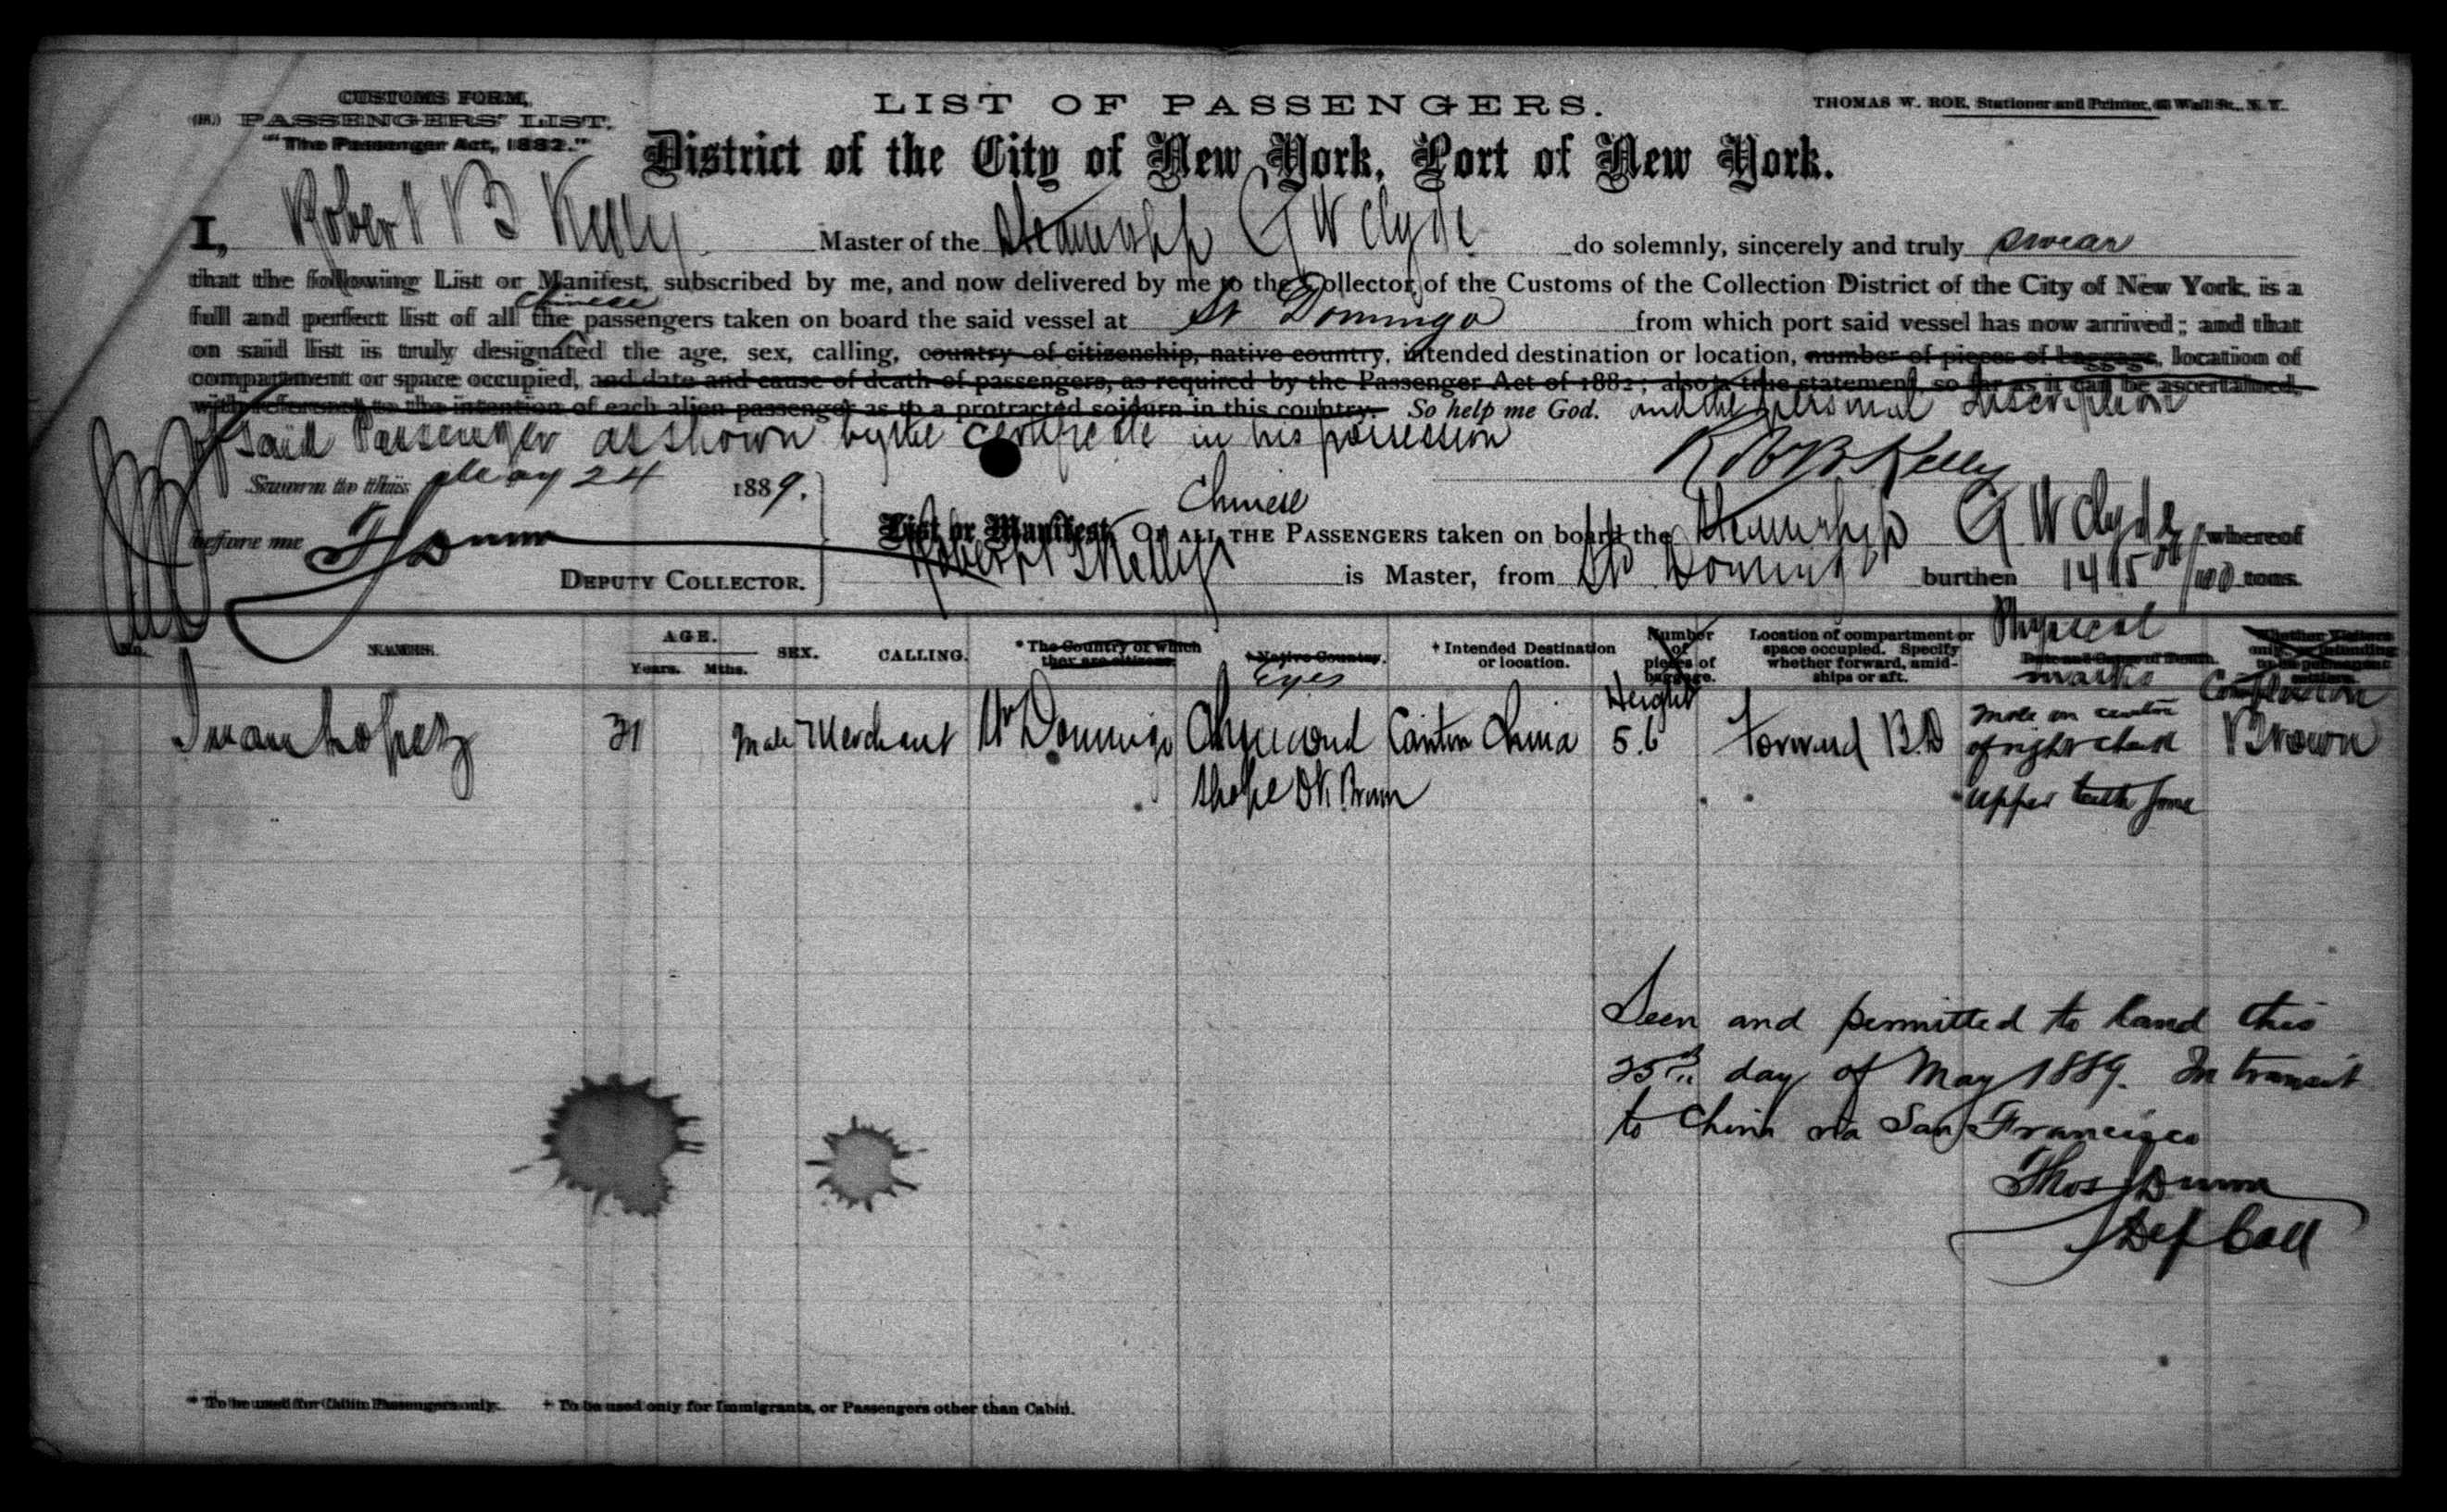 CUSTOMS FORM,
PASSENGERS' LIST.
"The Passenger Act, 1882."
LIST OF PASSENGERS.
THOMAS W. ROE, Stationer and Printer, Wall St., N. Y.
District of the City of New York, Port of New York.
I, Robert B Kelly Master of the Steamship G W Clyde do solemnly, sincerely and truly swear
that the following List or Manifest, subscribed by me, and now delivered by me to the Collector of the Customs of the Collection District of the City of New York, is a
full and perfect list of all the Chinese passengers taken on board the said vessel at St Domingo from which port said vessel has now arrived; and that
on said list is truly designated the age, sex, calling, country of citizenship, native country, intended destination or location, number of pieces of baggage, location of
compartment or space occupied, and date and cause of death of passengers, as required by the Passenger Act of 1882; also a true statement, so far as it can be ascertained,
with reference to the intention of each alien passenger as to a protracted sojourn in this country. So help me God. and the personal description
of said Passenger as shown by the certificate in his possession
Rob B Kelly
Sworn to this May 24 1889.
before me
DEPUTY COLLECTOR.
Chinese
List or Manifest OF ALL THE PASSENGERS taken on board the Steamship G W Clyde whereof
Robert B Kelly is Master, from St Domingo burthen tons.
No. NAMES. AGE. Years. Mths. SEX. CALLING. * The Country of which they are citizens. † Native Country. Eyes † Intended Destination or location. Number of pieces of baggage. Height Location of compartment or space occupied. Specify whether forward, amidships or aft. Physical Date and Cause of Death. marks Complexion
Juan Lopez 31 Male Merchant St Domingo Almond Canton China 5.6 Forward B.D Mole on centre of right cheek Brown
Shape Dk Brown upper teeth gone
Seen and permitted to land this
25th day of May 1889. In transit
to China via San Francisco
Thos J Dunn
Dep Coll
* To be used for Cabin Passengers only. † To be used only for Immigrants, or Passengers other than Cabin.